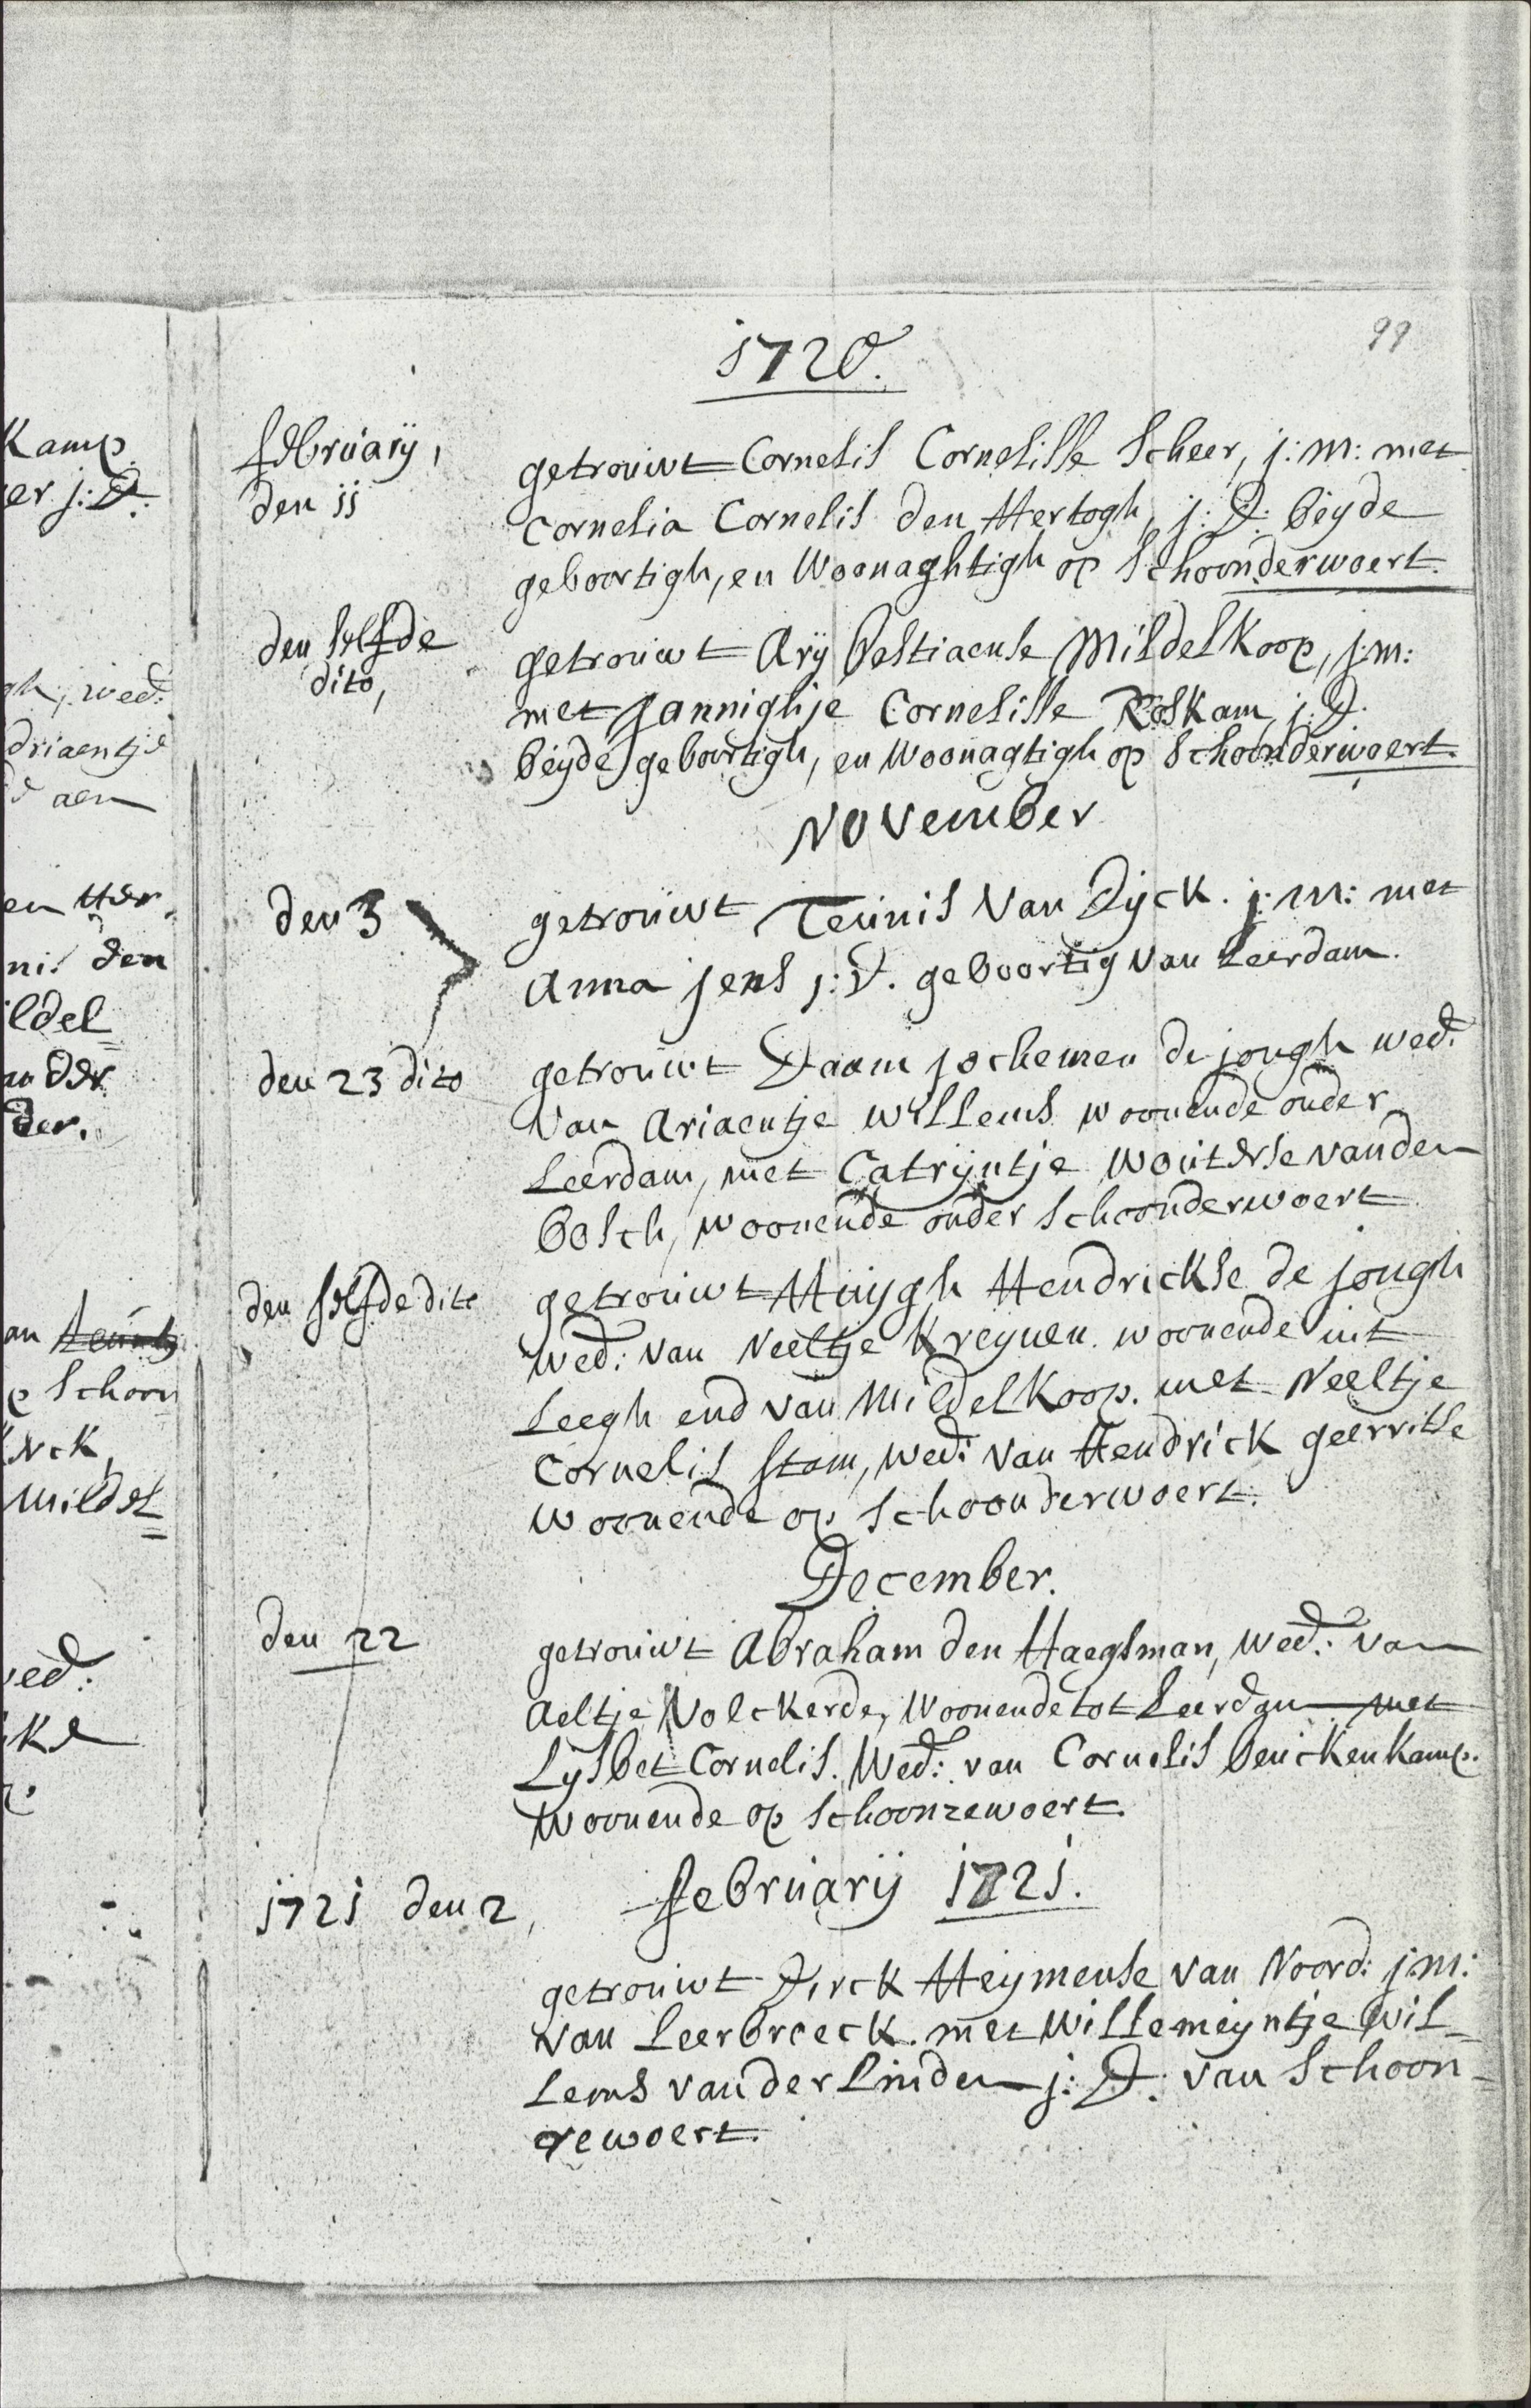 99
1720.
februarij,
den jj
getrouwt Cornelis Cornelisse Scheer, j: m: met
Cornelia Cornelis den Hertogh, j: D: beyde
geboortigh, en Woonaghtigh op Schoonderwoert.
den selfde
dito,
getrouwt Arij Bastiaense Mildelkoop, j: m:
met Jannighje Cornelisse Roskam, j: D.
beyde geboortigh, en Woonagtigh op Schoonderwoert.
November
den 3
getrouwt Teunis Van Dijck. j: m: met
Anna jens j: D. geboortig Van Leerdam.
den 23 dito
getrouwt Daam jochemen de jongh wed:
Van Ariaentje Willems woonende onder
Leerdam, met Catrijntje Wouterse vanden
Bosch, woonende onder Schoonderwoert
den selfde dito
getrouwt Huijgh Hendrickse de jongh
wed: van Neeltje Kreynen. woonende uit
Leegh end van Mildelkoop. met Neeltje
Cornelis Stam, wed: van Hendrick geerritse
woonende op Schoonderwoert.
December.
den 22
getrouwt Abraham den Haegsman, wed: van
Aeltje Volckerde, Woonende tot Leerdam met
Lysbet Cornelis. Wed: van Cornelis Beuckenkamp.
Woonende op Schoonrewoert.
1721 den 2,
februarij 1721.
getrouwt Dirck Heymense van Noord: j: m:
van Leerbroeck. met Willemeyntje Wil=
lems vander Linden j: D: van Schoon=
rewoert.
Kamp.
er j: D:
gh, wed:
driaentje
d aen
en Her
ni: den
ildel=
an der
der.
an
p Schoon
ck,
Mildel=
wed:
ke